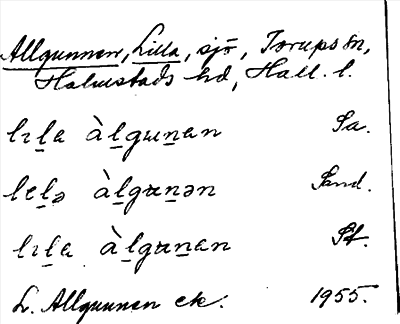 Allgunnen, Lilla, sjö, Torups sn,
Halmstads hd, Hall. l.
lɪl̲a àl̲gun̲an Sa.
lɛl̲ə àl̲gɯn̲ən Sand.
lɪl̲a àl̲gɯn̲an St.
L. Allgunnen ek. 1955.